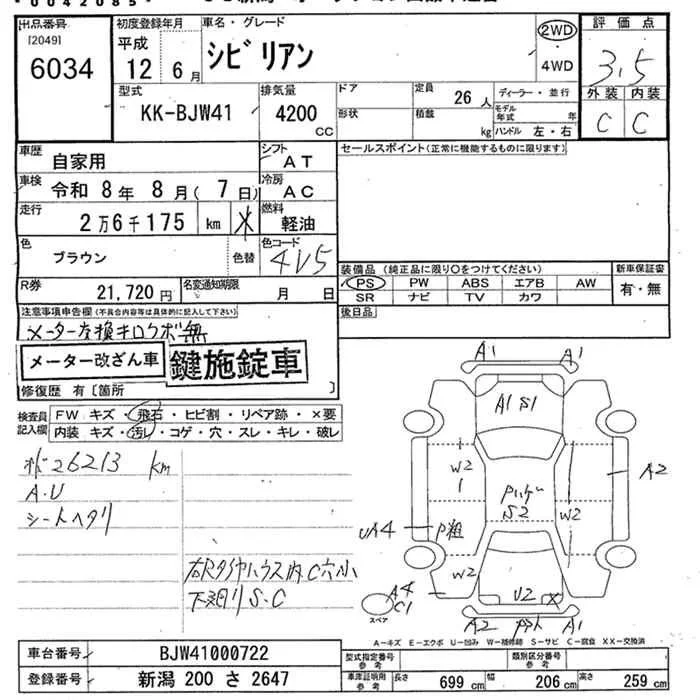 *0042085*
出品番号
[2049]
6034
初度登録年月
平成
12年6月
車名・グレード
シビリアン
2WD
4WD
評価点
3.5
外装 内装
C C
型式
KK-BJW41
排気量
4200
CC
ドア
形状
定員
26人
積載
kg
ディーラー・並行
モデル年式 年
ハンドル 左・右
車歴
自家用
シフト
AT
セールスポイント(正常に機能するものに限ります)
車検
令和 8年 8月( 7日)
冷房
AC
走行
2万6千175 km
燃料
軽油
色
ブラウン
色替
色コード
4V5
R券
21,720円
名変通知期限
月 日
装備品(純正品に限り○をつけてください)
PS PW ABS エアB AW
SR ナビ TV カワ
新車保証書
有・無
注意事項申告欄(不具合内容等は具体的に記入して下さい)
後日品
メーター交換キロクボ無
メーター改ざん車
鍵施錠車
修復歴 有〔箇所 〕
検査員記入欄
FW キズ・飛石・ヒビ割・リペア跡・×要
内装 キズ・汚レ・コゲ・穴・スレ・キレ・破レ
26213 km
A.U
シートヘタリ
右Rタイヤハウス内C穴小
下廻りS.C
A1 A1
A1 S1
W2
1
S2
W2
A2
UA4
P粗
W2
A4
C1
スペア
U2 X
A2 A1
A-キズ E-エクボ U-凹み W-補修跡 S-サビ C-腐食 XX-交換済
車台番号
BJW41000722
型式指定番号
参考
類別区分番号
参考
登録番号
新潟 200 さ 2647
車庫証明用
参考
長さ 699 cm
幅 206 cm
高さ 259 cm